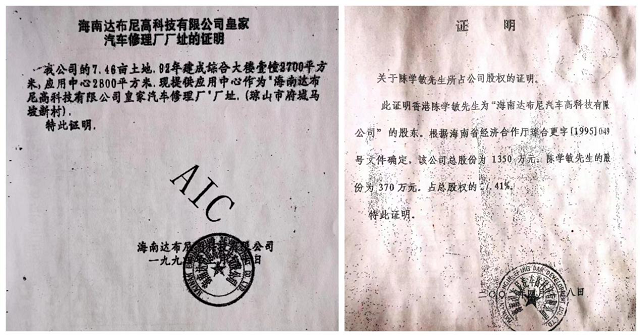 海南达布尼高科技有限公司皇家
汽车修理厂厂址的证明
我公司的7.46亩土地.92年建成综合大楼壹幢3700平方
米,应用中心2800平方米.现提供应用中心作为"海南达布
尼高科技有限公司皇家汽车修理厂"厂址.(琼山市府城马
坡新村).
特此证明.
AIC
海南达布尼高科技有限公司
一九九 日
证 明
关于陈学敏先生所占公司股权的证明。
此证明香港陈学敏先生为"海南达布尼汽车高科技有限
公司"的股东。根据海南省经济合作厅琼台更字[1995]049
号文件确定，该公司总股份为1350万元，陈学敏先生的股
份为370万元。占总股权的 .41%。
特此证明。
二〇 月 八日